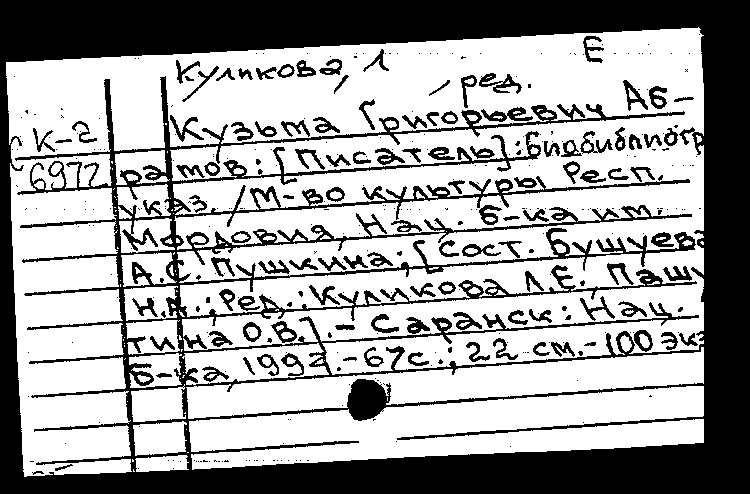 Е
Куликова, Л
, ред.
К-2
6972
Кузьма Григорьевич Аб-
рамов: [Писатель]: биобиблиогр
указ. / М-во культуры Респ.
Мордовия, Нац. б-ка им.
А.С. Пушкина; [Сост. Бушуева
Н.А.; Ред.: Куликова Л.Е., Пашу
тина О.В.]. - Саранск: Нац.
б-ка, 199. - 67с.; 22 см. - 100 экз